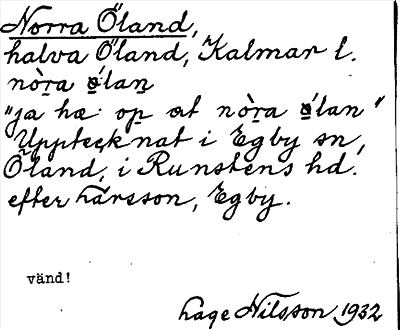 Norra Öland,
halva Öland, Kalmar l.
nòṟa ǿlaṉ
"ja hæ· op at nòṟa ǿlan"
Upptecknat i Egby sn,
Öland, i Runstens hd.
efter Larsson, Egby.
vänd!
Lage Nilsson 1932